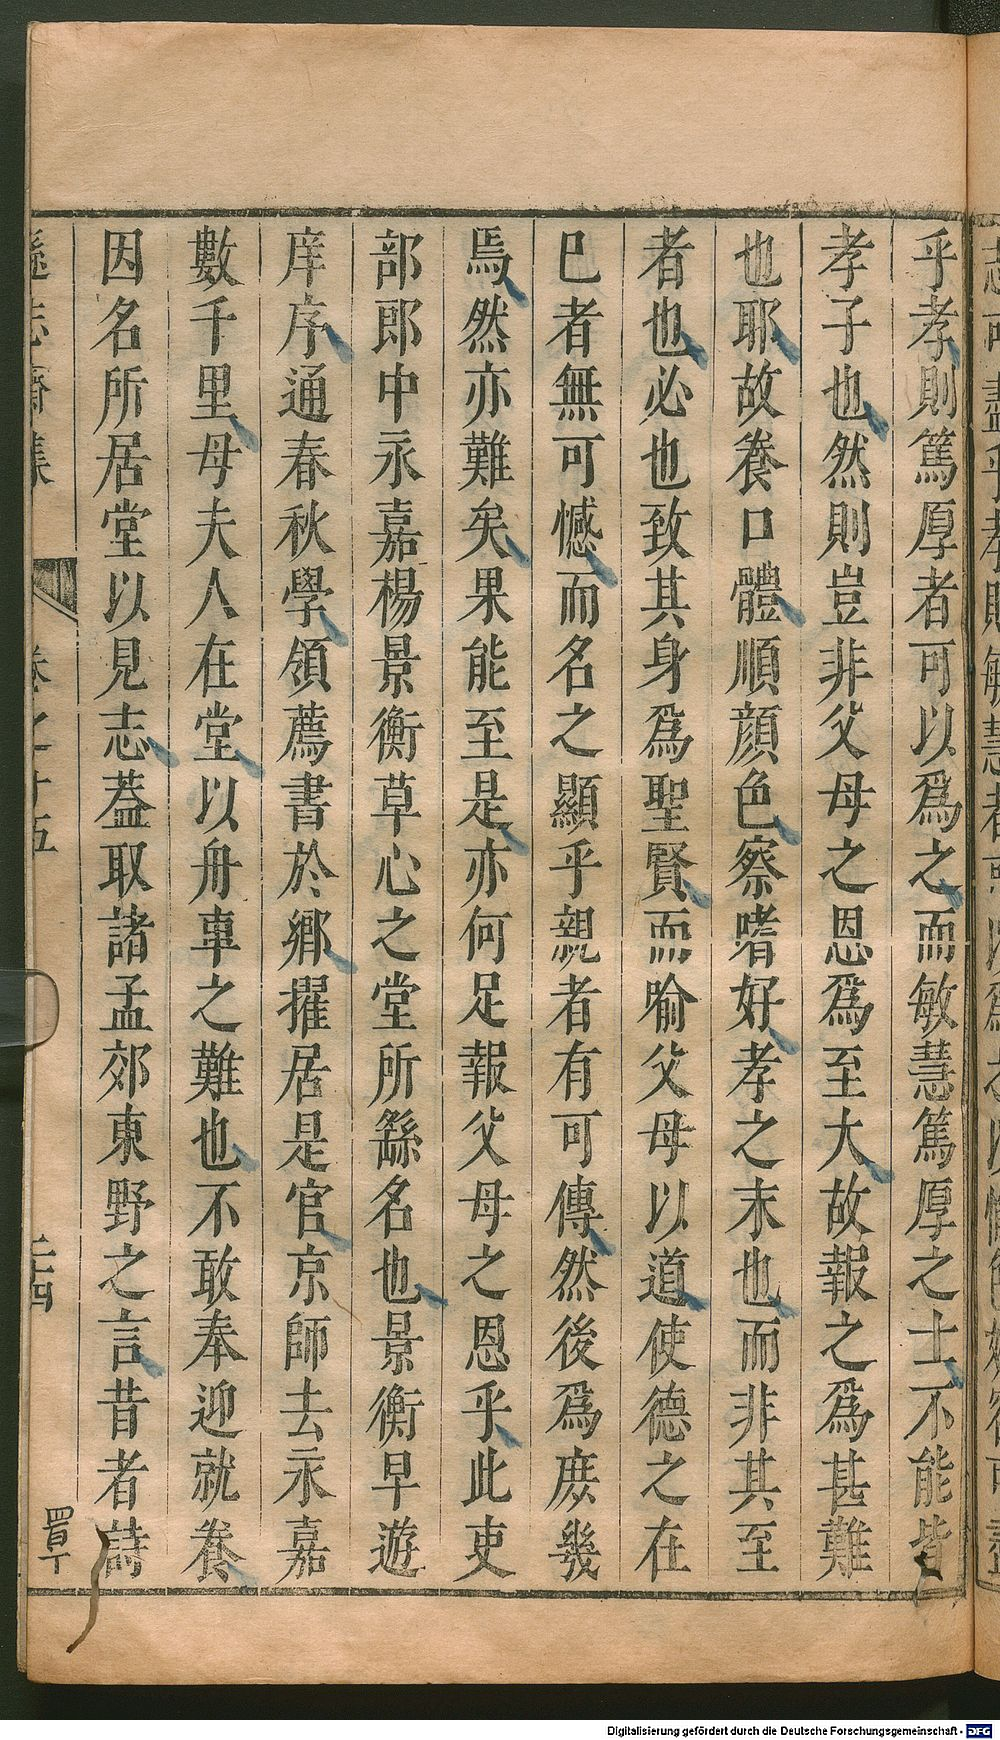 乎孝則篤厚者可以爲之而敏慧篤厚之士不能皆
孝子也然則豈非父母之恩爲至大故報之爲甚難
也耶故養口體順顔色察嗜好孝之末也而非其至
者也必也致其身爲聖賢而喻父母以道使德之在
已者無可憾而名之顯乎親者有可傳然後爲庶幾
焉然亦難矣果能至是亦何足報父母之恩乎此吏
部郎中永嘉楊景衡草心之堂所繇名也景衡早遊
庠序通春秋學領薦書於鄉擢居是官京師去永嘉
數千里母夫人在堂以舟車之難也不敢奉迎就養
因名所居堂以見志蓋取諸孟郊東野之言昔者詩
遜志齋集 卷之十五 二十四
Digitalisierung gefördert durch die Deutsche Forschungsgemeinschaft - DFG